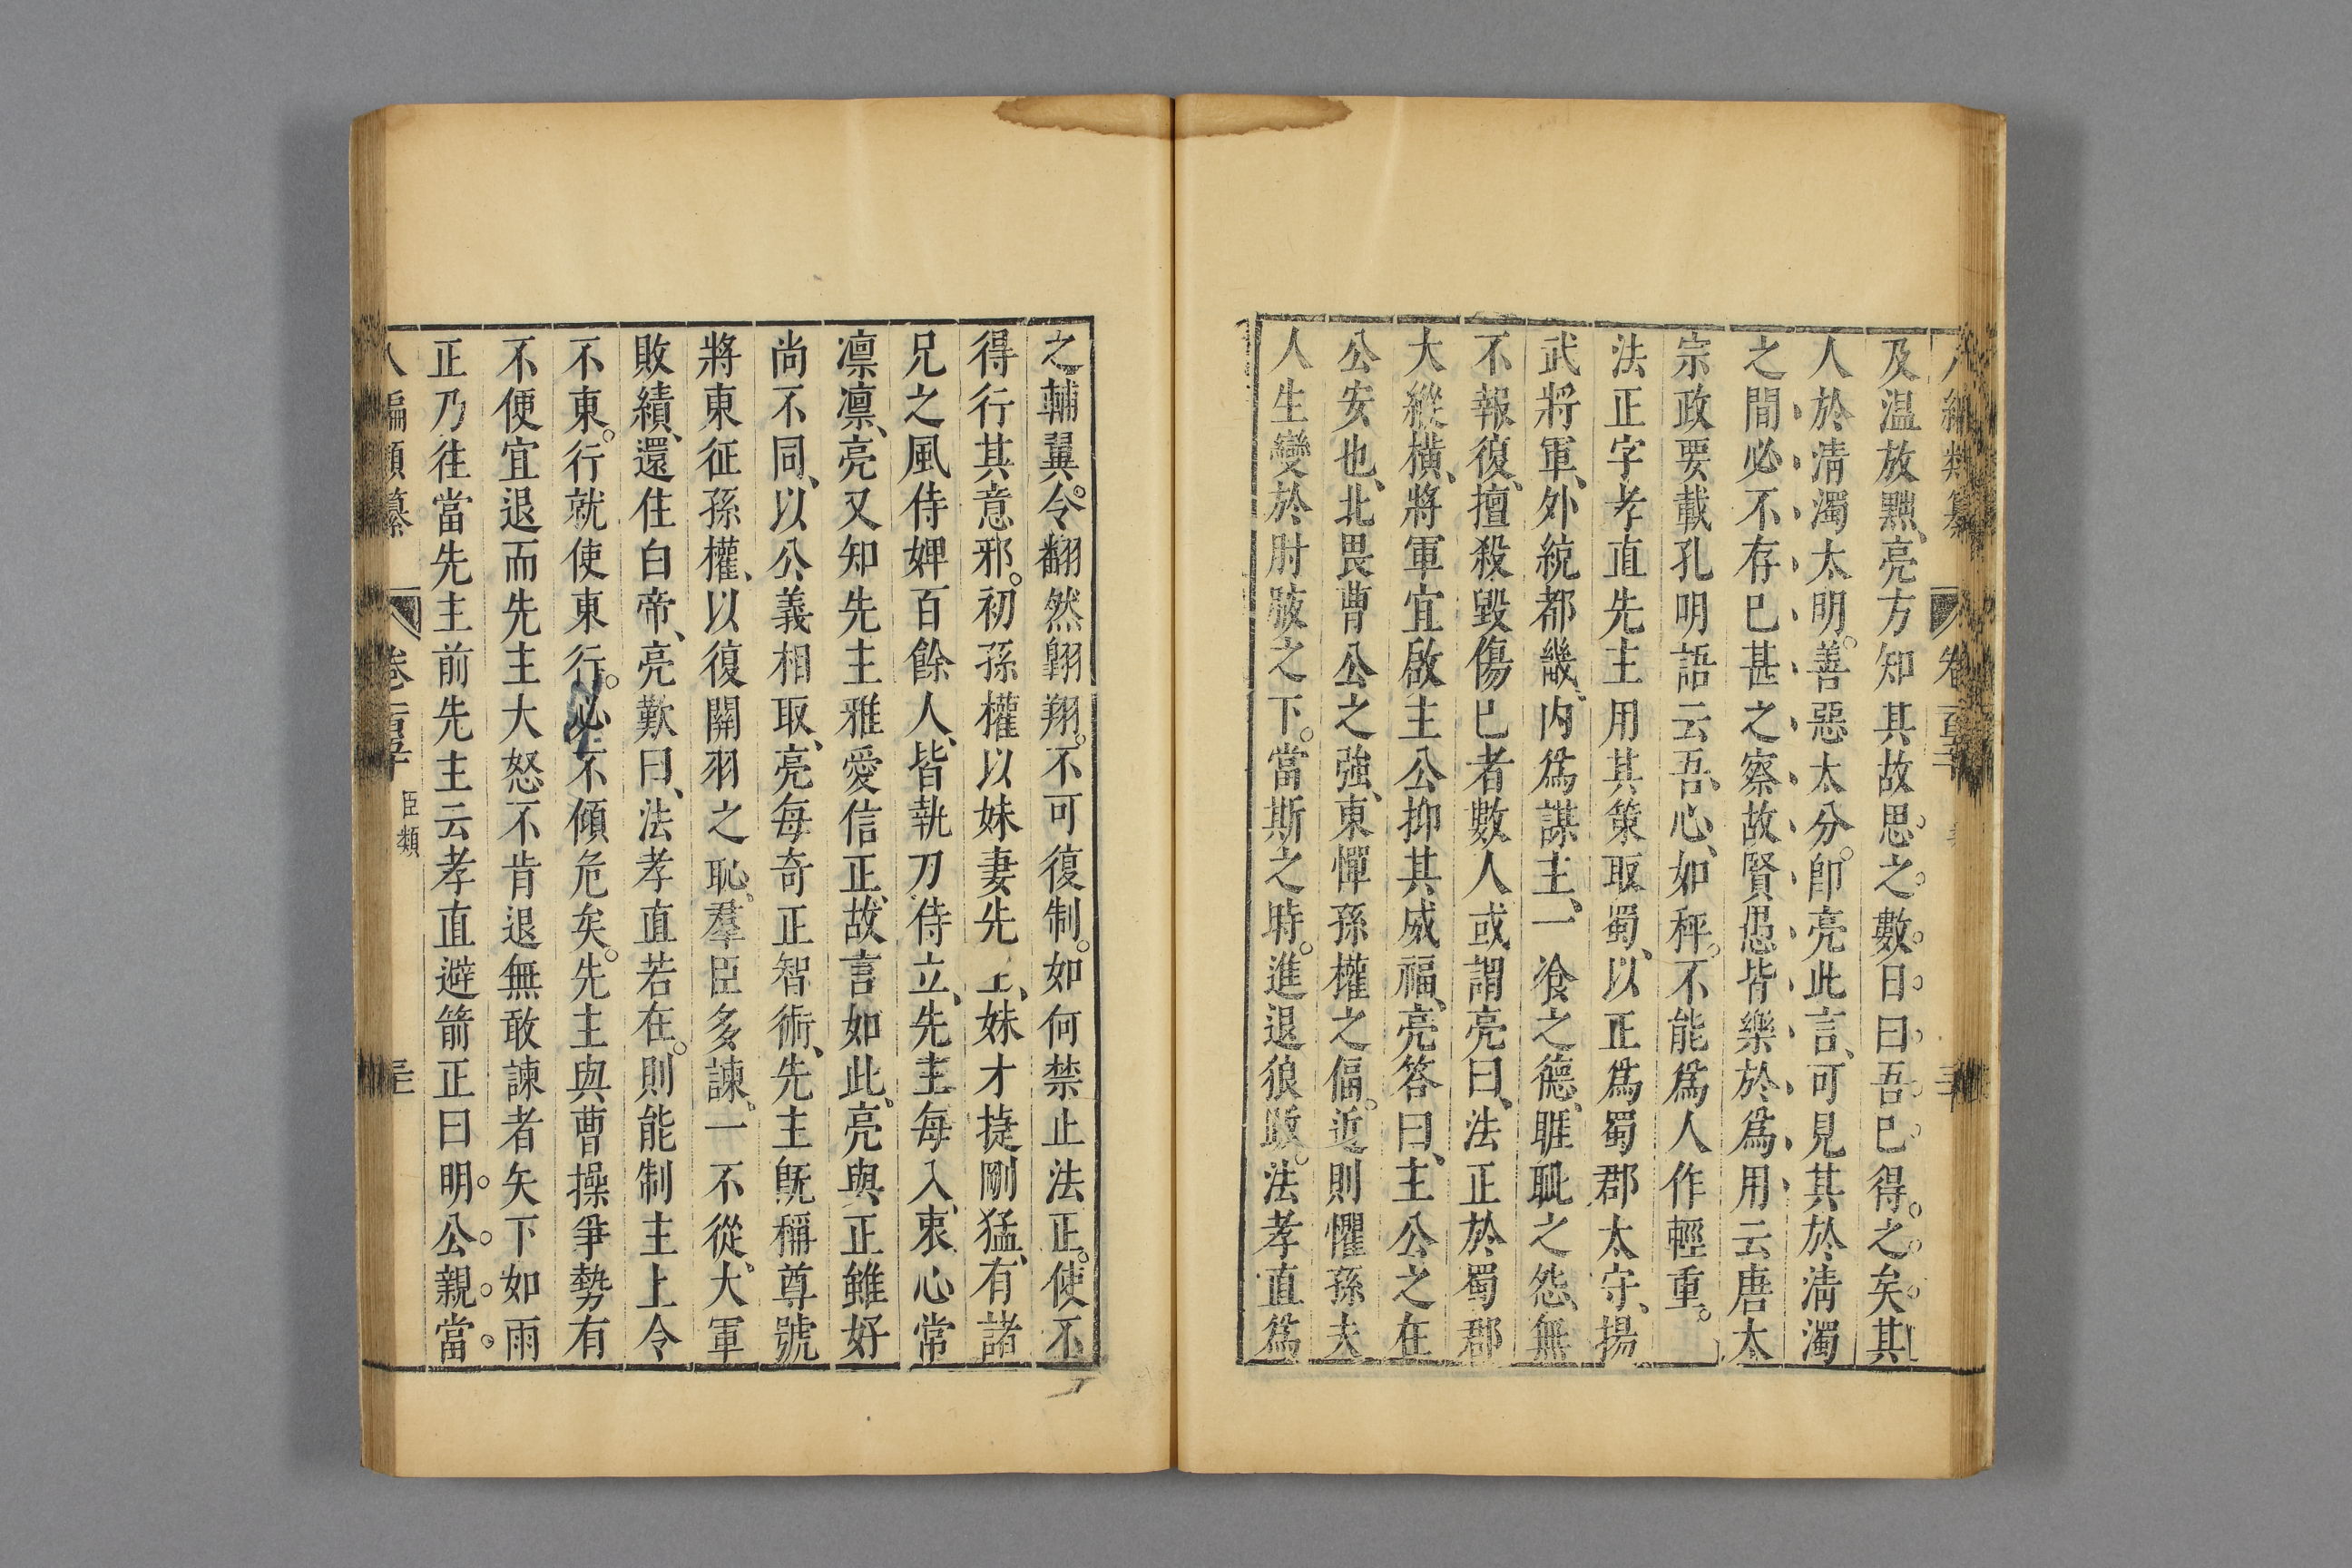 及温放黜、亮方知其故思之數日曰吾已得之矣其
人於清濁太明。善惡太分。卽亮此言、可見其於清濁
之間必不存已甚之察故賢愚皆樂於爲用云唐太
宗政要載孔明語云吾、心、如秤。不能爲人作輕重。
法正字孝直先主用其策取蜀、以正爲蜀郡太守、揚
武將軍、外統都畿、内爲謀主、一飡之德、睚眦之怨、無
不報復、擅殺毀傷已者數人或謂亮曰、法正於蜀郡
大縱橫、將軍宜啟主公抑其威福、亮答曰、主公之在
公安也、北畏曹公之強、東憚孫權之偪。近則懼孫夫
人生變於肘腋之下。當斯之時。進退狼跋。法孝直爲
之輔翼。令翻然翺翔。不可復制。如何禁止法正。使不
得行其意邪。初孫權以妹妻先主、妹才捷剛猛、有諸
兄之風侍婢百餘人、皆執刀侍立、先主每入、衷心常
凛凛、亮又知先主雅愛信正、故言如此。亮與正雖好
尚不同、以公義相取、亮每奇正智術、先主旣稱尊號
將東征孫權、以復關羽之恥、羣臣多諫、一不從、大軍
敗績、還住白帝、亮歎曰、法孝直若在。則能制主上令
不東。行就使東行。必不傾危矣。先主與曹操爭勢有
不便宜退而先主大怒不肯退無敢諫者矢下如雨
正乃往當先主前先主云孝直避箭正曰明公親當
編類纂 卷 臣類